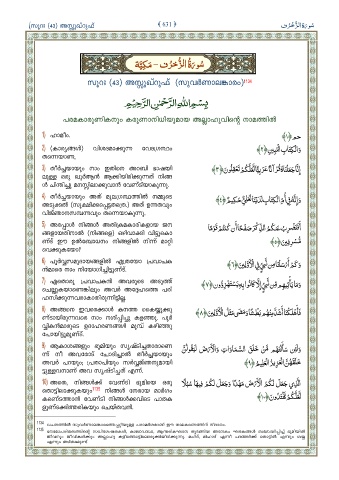 (സൂറഃ (43) അസ്സുഖ്റുഫ്
( 631 )
سُورَةُ الزُّخْرُف
سُورَةُ الزُّخْرُف - مَكِّيَّة
സൂറഃ (43) അസ്സുഖ്റുഫ് (സുവർണാലങ്കാരം)
بِسْمِ اللَّهِ الرَّحْمَٰنِ الرَّحِيمِ
പരമകാരുണികനും കരുണാനിധിയുമായ അല്ലാഹുവിന്റെ നാമത്തിൽ
1) ഹാമീം.
حم ﴿١﴾
2) (കാര്യങ്ങൾ) വിശദമാക്കുന്ന വേദഗ്രന്ഥം
തന്നെയാണ,
وَالْكِتَابِ الْمُبِينِ ﴿٢﴾
3) തീർച്ചയായും നാം ഇതിനെ അറബി ഭാഷയി
ലുള്ള ഒരു ഖുർആൻ ആക്കിയിരിക്കുന്നത് നിങ്ങ
ൾ ചിന്തിച്ചു മനസ്സിലാക്കുവാൻ വേണ്ടിയാകുന്നു.
إِنَّا جَعَلْنَاهُ قُرْآنًا عَرَبِيًّا لَعَلَّكُمْ تَعْقِلُونَ ﴿٣﴾
4) തീർച്ചയായും അത് മൂലഗ്രന്ഥത്തിൽ നമ്മുടെ
അടുക്കൽ (സൂക്ഷിക്കപ്പെട്ടതത്രെ.) അത് ഉന്നതവും
വിജ്ഞാനസമ്പന്നവും തന്നെയാകുന്നു.
وَإِنَّهُ فِي أُمِّ الْكِتَابِ لَدَيْنَا لَعَلِيٌّ حَكِيمٌ ﴿٤﴾
5) അപ്പോൾ നിങ്ങൾ അതിക്രമകാരികളായ ജന
ങ്ങളായതിനാൽ (നിങ്ങളെ) ഒഴിവാക്കി വിട്ടുകൊ
ണ്ട് ഈ ഉൽബോധനം നിങ്ങളിൽ നിന്ന് മാറ്റി
വെക്കുകയോ?
أَفَنَضْرِبُ عَنكُمُ الذِّكْرَ صَفْحًا أَن كُنتُمْ قَوْمًا
مُّسْرِفِينَ ﴿٥﴾
6) പൂർവ്വസമുദായങ്ങളിൽ എത്രയോ പ്രവാചക
ന്മാരെ നാം നിയോഗിച്ചിട്ടുണ്ട്.
وَكَمْ أَرْسَلْنَا مِن نَّبِيٍّ فِي الْأَوَّلِينَ ﴿٦﴾
7) ഏതൊരു പ്രവാചകൻ അവരുടെ അടുത്ത്
ചെല്ലുകയാണെങ്കിലും അവർ അദ്ദേഹത്തെ പരി
ഹസിക്കുന്നവരാകാതിരുന്നിട്ടില്ല.
وَمَا يَأْتِيهِم مِّن نَّبِيٍّ إِلَّا كَانُوا بِهِ يَسْتَهْزِئُونَ ﴿٧﴾
8) അങ്ങനെ ഇവരെക്കാൾ കനത്ത കൈയൂക്കു
ണ്ടായിരുന്നവരെ നാം നശിപ്പിച്ചു കളഞ്ഞു. പൂർ
വ്വികന്മാരുടെ ഉദാഹരണങ്ങൾ മുമ്പ് കഴിഞ്ഞു
പോയിട്ടുമുണ്ട്.
فَأَهْلَكْنَا أَشَدَّ مِنْهُم بَطْشًا وَمَضَىٰ مَثَلُ الْأَوَّلِينَ ﴿٨﴾
9) ആകാശങ്ങളും ഭൂമിയും സൃഷ്ടിച്ചതാരാണെ
ന്ന് നീ അവരോട് ചോദിച്ചാൽ തീർച്ചയായും
അവർ പറയും; പ്രതാപിയും സർവ്വജ്ഞനുമായി
ട്ടുള്ളവനാണ് അവ സൃഷ്ടിച്ചത് എന്ന്.
وَلَئِن سَأَلْتَهُم مَّنْ خَلَقَ السَّمَاوَاتِ وَالْأَرْضَ لَيَقُولُنَّ
خَلَقَهُنَّ الْعَزِيزُ الْعَلِيمُ ﴿٩﴾
10) അതെ, നിങ്ങൾക്ക് വേണ്ടി ഭൂമിയെ ഒരു
തൊട്ടിലാക്കുകയും നിങ്ങൾ നേരായ മാർഗം
കണ്ടെത്താൻ വേണ്ടി നിങ്ങൾക്കവിടെ പാതക
ളുണ്ടാക്കിത്തരികയും ചെയ്തവൻ.
الَّذِي جَعَلَ لَكُمُ الْأَرْضَ مَهْدًا وَجَعَلَ لَكُمْ فِيهَا سُبُلًا
لَّعَلَّكُمْ تَهْتَدُونَ ﴿١٠﴾